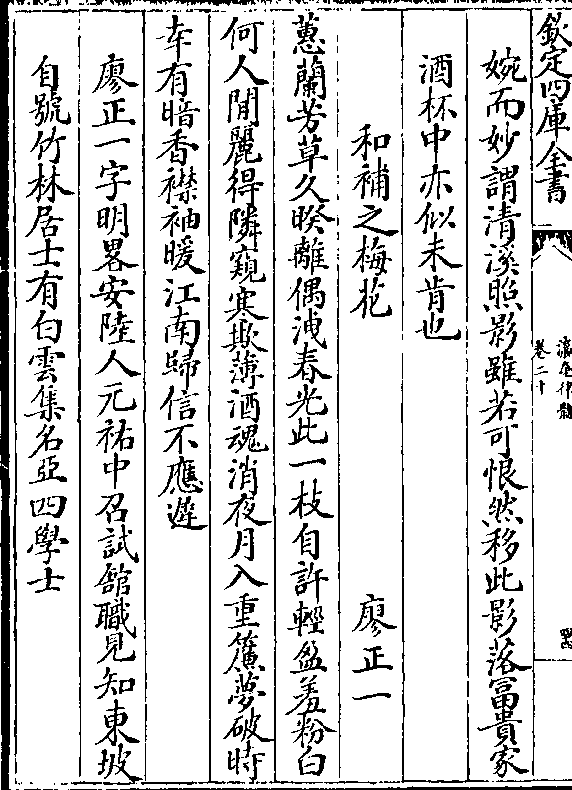 欽定四庫全書
瀛奎律髓
卷二十
婉而妙謂清溪照影雖若可恨然移此影落富貴家
酒杯中亦似未肯也
和補之梅花 廖正一
蕙蘭芳草久暌離偶洩春光此一枝自許輕盈羞粉白
何人閒麗得隣窺寒欺薄酒魂消夜月入重簾夢破時
幸有暗香襟袖暖江南歸信不應遲
廖正一字明畧安陸人元祐中召試館職見知東坡
自號竹林居士有白雲集名亞四學士